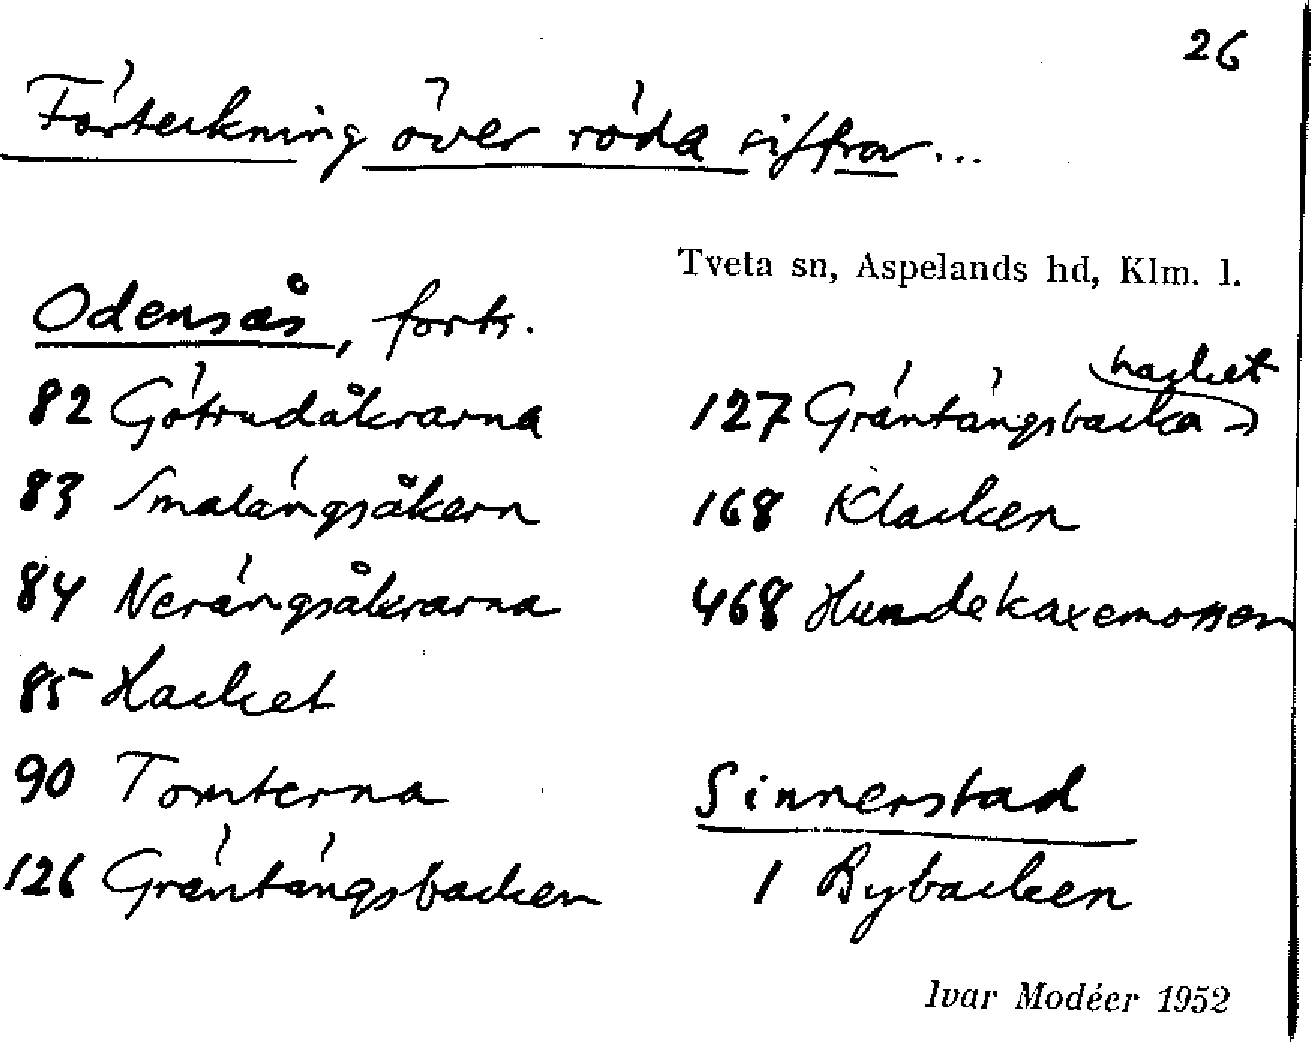 26
Förteckning över röda siffror...
Tveta sn, Aspelands hd, Klm. l.
Odensås, forts.
82 Götrudåkrarna
83 Smalängsåkern
84 Nerängsåkrarna
85 Hacket
90 Tomterna
126 Gräntängsbacken
hacket
127 Gräntängsbacka
168 Klacken
468 Hundekaxemossen
Sinnerstad
1 Bybacken
Ivar Modéer 1952